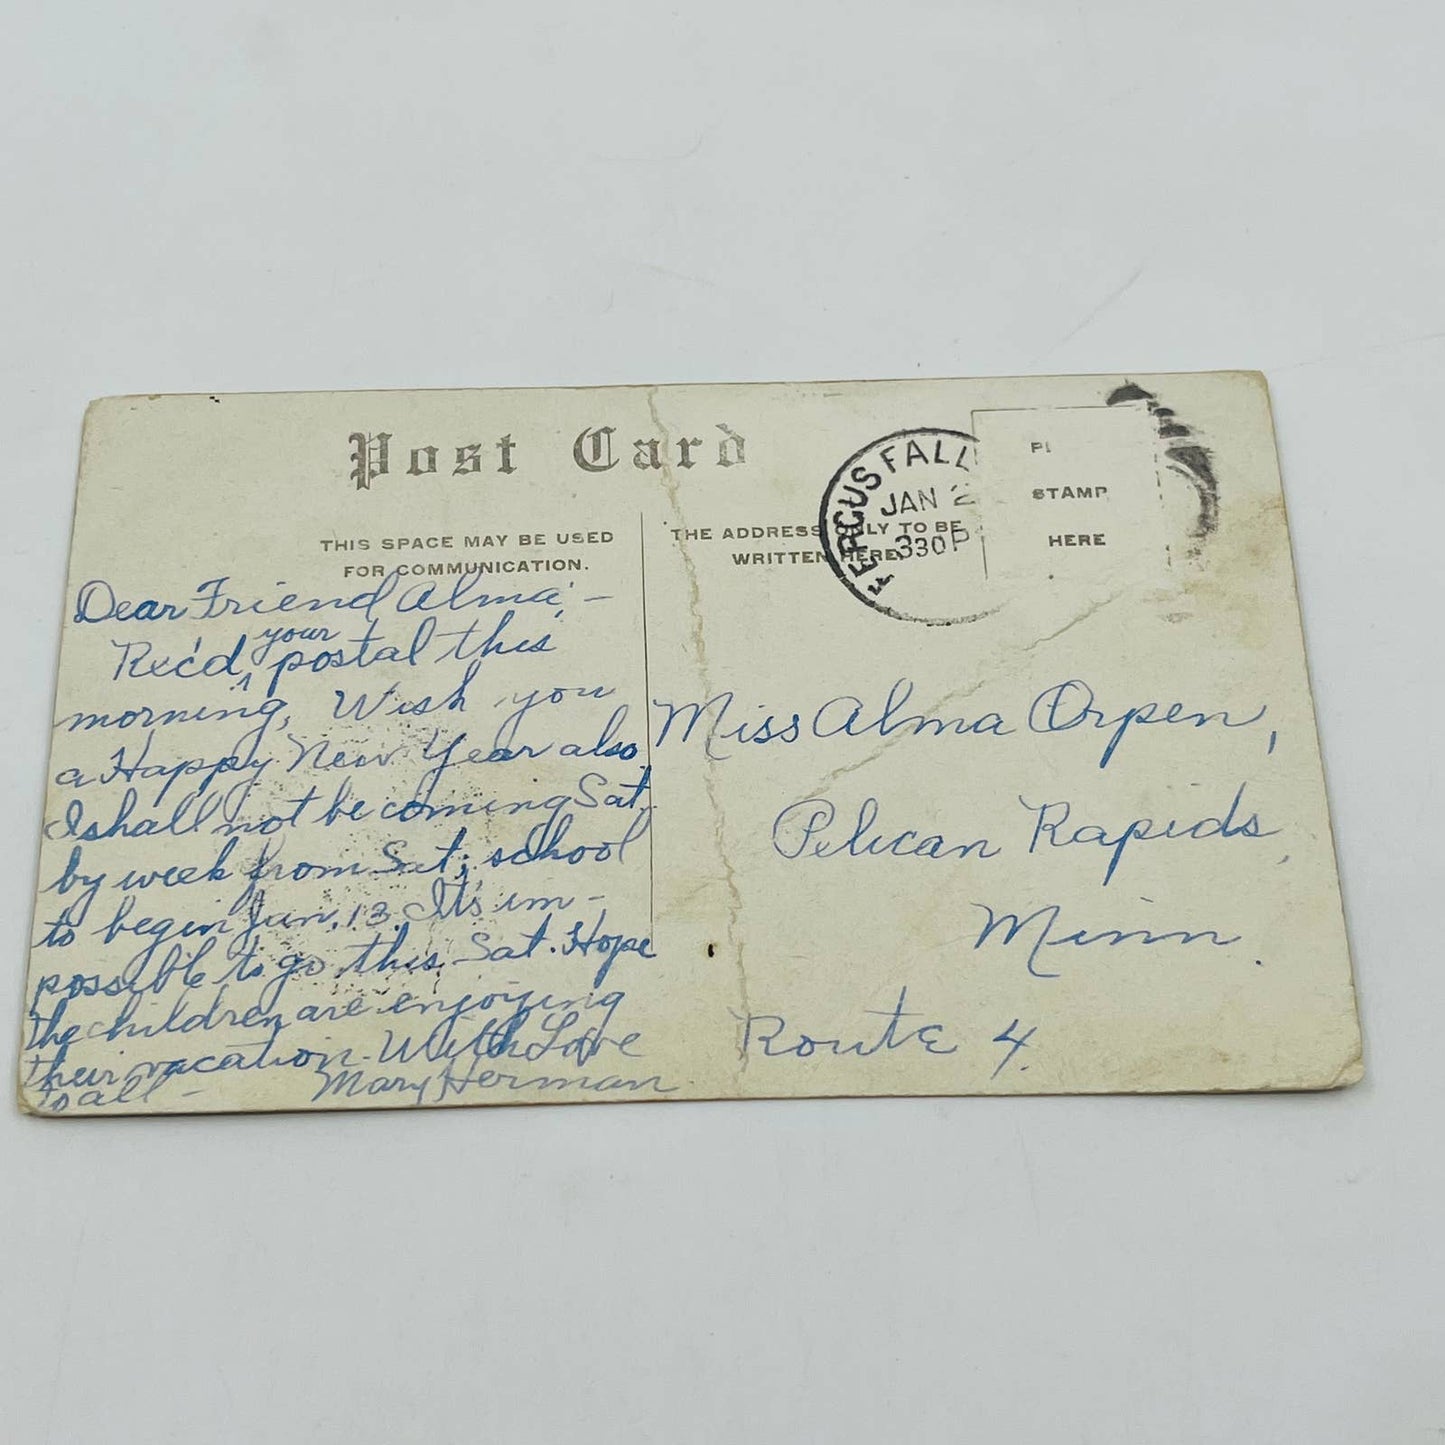 Post Card
THIS SPACE MAY BE USED
FOR COMMUNICATION.
THE ADDRESS ONLY TO BE
WRITTEN HERE.
FERGUS FALL
JAN 2
330P
STAMP
HERE
Dear Friend Alma,-
Rec'd your postal this
morning, Wish you
a Happy New Year also.
I shall not be coming Sat.
by week from Sat; school
to begin Jan. 13. It's im-
possible to go this Sat. Hope
the children are enjoying
their vacation. With Love
to all - Mary Herman
Miss Alma Orpen,
Pelican Rapids,
Minn.
Route 4.